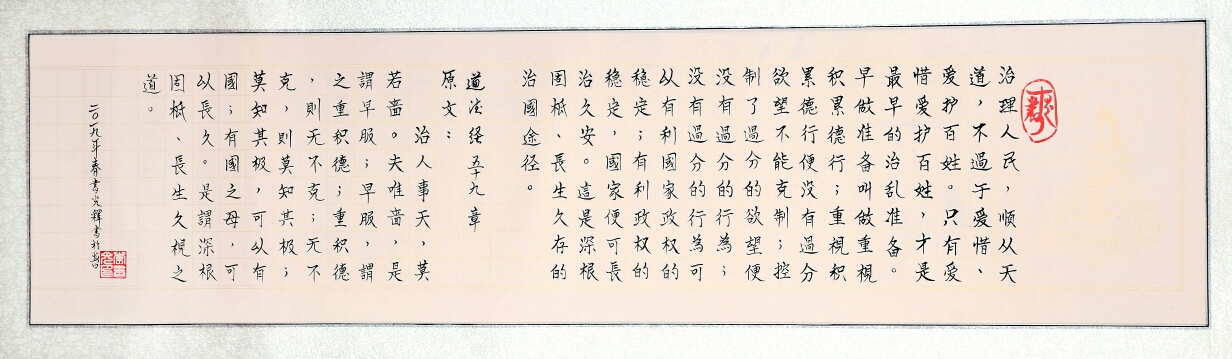 治理人民，顺从天
道，不過于爱惜、
爱护百姓。只有爱
惜爱护百姓，才是
最早的治乱准备。
早做准备叫做重視
积累德行；重視积
累德行便没有過分
欲望不能克制；控
制了過分的欲望便
没有過分的行為；
没有過分的行為可
从有利國家政权的
稳定；有利政权的
稳定，國家便可長
治久安。這是深根
固柢、長生久存的
治國途径。
道法经五十九章
原文：
治人事天，莫
若嗇。夫唯嗇，是
謂早服；早服，謂
之重积德；重积德
，則无不克；无不
克，則莫知其极；
莫知其极，可以有
國；有國之母，可
以長久。是謂深根
固柢、長生久視之
道。
二〇一九年春